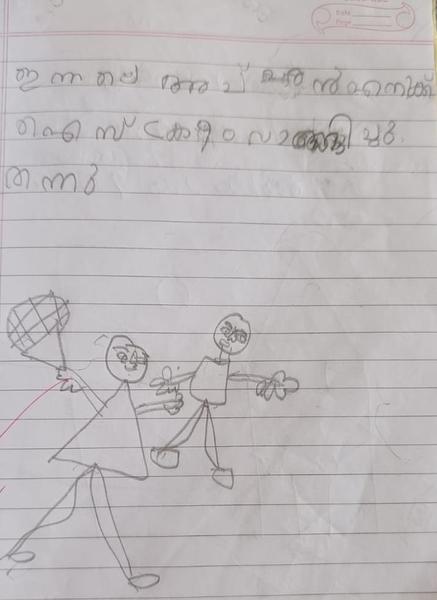 Date
Page
ഇന്നലെ അച്ഛൻ എനിക്ക്
ഐസ് ക്രീം വാങ്ങി ച്ചു
തന്നു